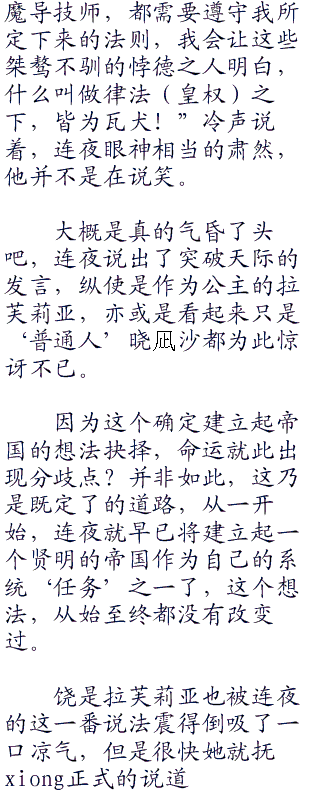 魔导技师，都需要遵守我所
定下来的法则，我会让这些
桀骜不驯的悖德之人明白，
什么叫做律法（皇权）之
下，皆为瓦犬！”冷声说
着，连夜眼神相当的肃然，
他并不是在说笑。
大概是真的气昏了头
吧，连夜说出了突破天际的
发言，纵使是作为公主的拉
芙莉亚，亦或是看起来只是
‘普通人’晓凪沙都为此惊
讶不已。
因为这个确定建立起帝
国的想法抉择，命运就此出
现分歧点？并非如此，这乃
是既定了的道路，从一开
始，连夜就早已将建立起一
个贤明的帝国作为自己的系
统‘任务’之一了，这个想
法，从始至终都没有改变
过。
饶是拉芙莉亚也被连夜
的这一番说法震得倒吸了一
口凉气，但是很快她就抚
xiong正式的说道